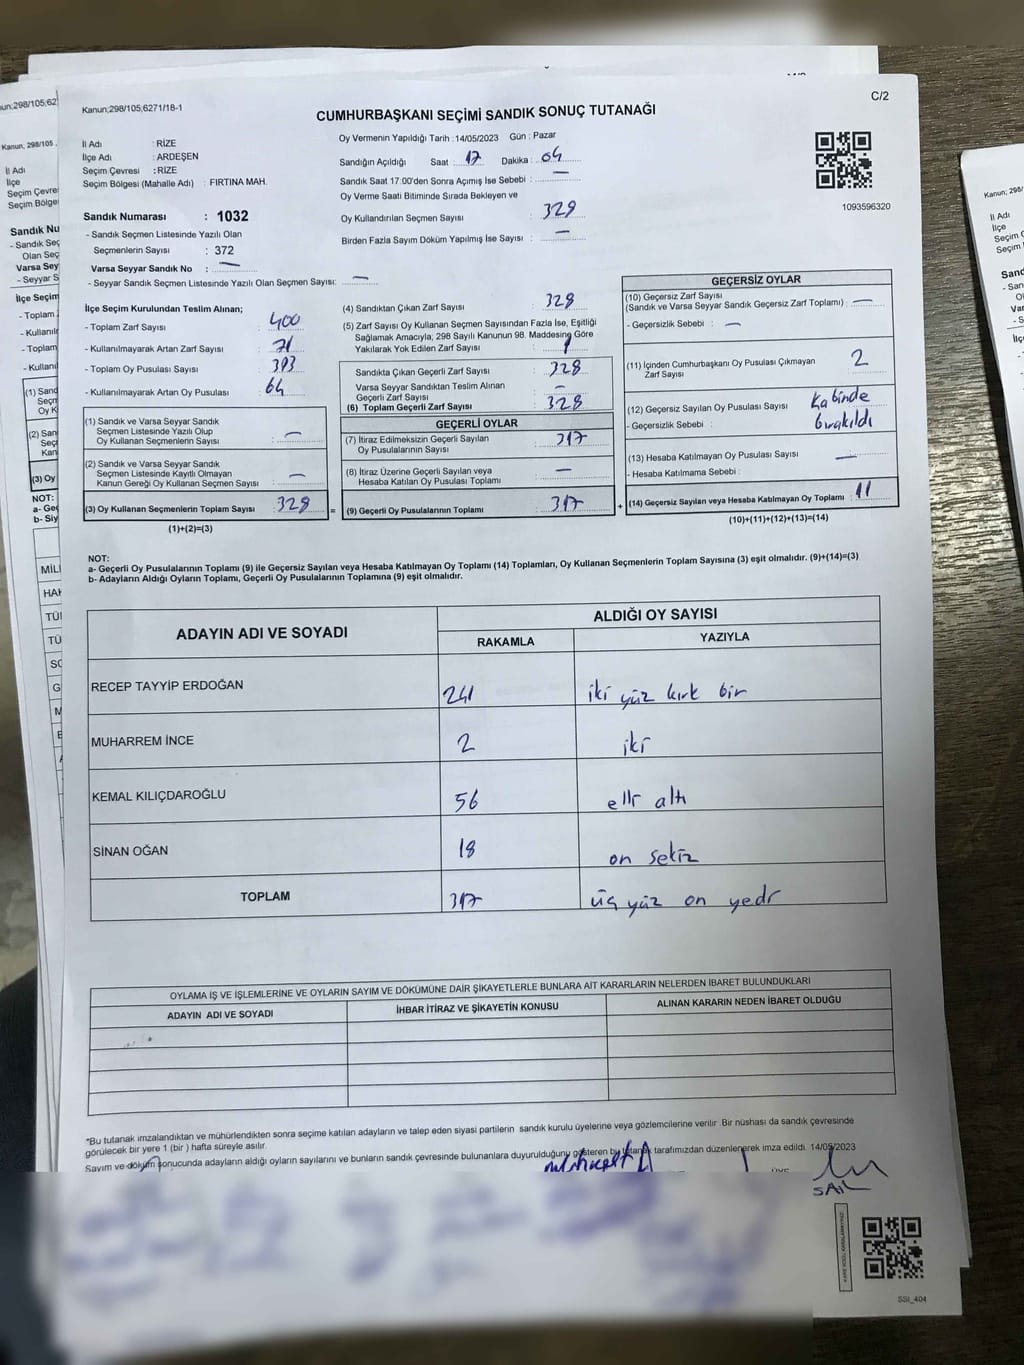 Kanun;298/105;6271/18-1
C/2
CUMHURBAŞKANI SEÇİMİ SANDIK SONUÇ TUTANAĞI
İl Adı : RİZE
İlçe Adı : ARDEŞEN
Seçim Çevresi : RİZE
Seçim Bölgesi (Mahalle Adı) : FIRTINA MAH.
Sandık Numarası : 1032
- Sandık Seçmen Listesinde Yazılı Olan
Seçmenlerin Sayısı : 372
Varsa Seyyar Sandık No : —
- Seyyar Sandık Seçmen Listesinde Yazılı Olan Seçmen Sayısı: —
Oy Vermenin Yapıldığı Tarih : 14/05/2023 Gün : Pazar
Sandığın Açıldığı Saat : 17 Dakika : 04
Sandık Saat 17:00'den Sonra Açımış İse Sebebi : —
Oy Verme Saati Bitiminde Sırada Bekleyen ve
Oy Kullandırılan Seçmen Sayısı 329
Birden Fazla Sayım Döküm Yapılmış İse Sayısı : —
1093596320
İlçe Seçim Kurulundan Teslim Alınan;
- Toplam Zarf Sayısı : 400
- Kullanılmayarak Artan Zarf Sayısı : 71
- Toplam Oy Pusulası Sayısı : 393
- Kullanılmayarak Artan Oy Pusulası : 64
(1) Sandık ve Varsa Seyyar Sandık
Seçmen Listesinde Yazılı Olup
Oy Kullanan Seçmenlerin Sayısı : —
(2) Sandık ve Varsa Seyyar Sandık
Seçmen Listesinde Kayıtlı Olmayan
Kanun Gereği Oy Kullanan Seçmen Sayısı : —
(3) Oy Kullanan Seçmenlerin Toplam Sayısı : 328 =
(1)+(2)=(3)
(4) Sandıktan Çıkan Zarf Sayısı : 328
(5) Zarf Sayısı Oy Kullanan Seçmen Sayısından Fazla İse, Eşitliği
Sağlamak Amacıyla; 298 Sayılı Kanunun 98. Maddesine Göre
Yakılarak Yok Edilen Zarf Sayısı :
Sandıkta Çıkan Geçerli Zarf Sayısı : 328
Varsa Seyyar Sandıktan Teslim Alınan
Geçerli Zarf Sayısı : —
(6) Toplam Geçerli Zarf Sayısı : 328
GEÇERLİ OYLAR
(7) İtiraz Edilmeksizin Geçerli Sayılan
Oy Pusulalarının Sayısı : 317
(8) İtiraz Üzerine Geçerli Sayılan veya
Hesaba Katılan Oy Pusulası Toplamı : —
(9) Geçerli Oy Pusulalarının Toplamı : 317 +
GEÇERSİZ OYLAR
(10) Geçersiz Zarf Sayısı
(Sandık ve Varsa Seyyar Sandık Geçersiz Zarf Toplamı) : —
- Geçersizlik Sebebi : —
(11) İçinden Cumhurbaşkanı Oy Pusulası Çıkmayan
Zarf Sayısı 2
(12) Geçersiz Sayılan Oy Pusulası Sayısı : Kabinde
- Geçersizlik Sebebi : bırakıldı
(13) Hesaba Katılmayan Oy Pusulası Sayısı : —
- Hesaba Katılmama Sebebi :
(14) Geçersiz Sayılan veya Hesaba Katılmayan Oy Toplamı : 11
(10)+(11)+(12)+(13)=(14)
NOT:
a- Geçerli Oy Pusulalarının Toplamı (9) ile Geçersiz Sayılan veya Hesaba Katılmayan Oy Toplamı (14) Toplamları, Oy Kullanan Seçmenlerin Toplam Sayısına (3) eşit olmalıdır. (9)+(14)=(3)
b- Adayların Aldığı Oyların Toplamı, Geçerli Oy Pusulalarının Toplamına (9) eşit olmalıdır.
ADAYIN ADI VE SOYADI
ALDIĞI OY SAYISI
RAKAMLA YAZIYLA
RECEP TAYYİP ERDOĞAN 241 iki yüz kırk bir
MUHARREM İNCE 2 iki
KEMAL KILIÇDAROĞLU 56 elli altı
SİNAN OĞAN 18 on sekiz
TOPLAM 317 üç yüz on yedi
OYLAMA İŞ VE İŞLEMLERİNE VE OYLARIN SAYIM VE DÖKÜMÜNE DAİR ŞİKAYETLERLE BUNLARA AİT KARARLARIN NELERDEN İBARET BULUNDUKLARI
ADAYIN ADI VE SOYADI İHBAR İTİRAZ VE ŞİKAYETİN KONUSU ALINAN KARARIN NEDEN İBARET OLDUĞU
*Bu tutanak imzalandıktan ve mühürlendikten sonra seçime katılan adayların ve talep eden siyasi partilerin sandık kurulu üyelerine veya gözlemcilerine verilir .Bir nüshası da sandık çevresinde
görülecek bir yere 1 (bir ) hafta süreyle asılır.
Sayım ve döküm sonucunda adayların aldığı oyların sayılarını ve bunların sandık çevresinde bulunanlara duyurulduğunu gösteren bu tutanak tarafımızdan düzenlenerek imza edildi. 14/05/2023
SSI_404